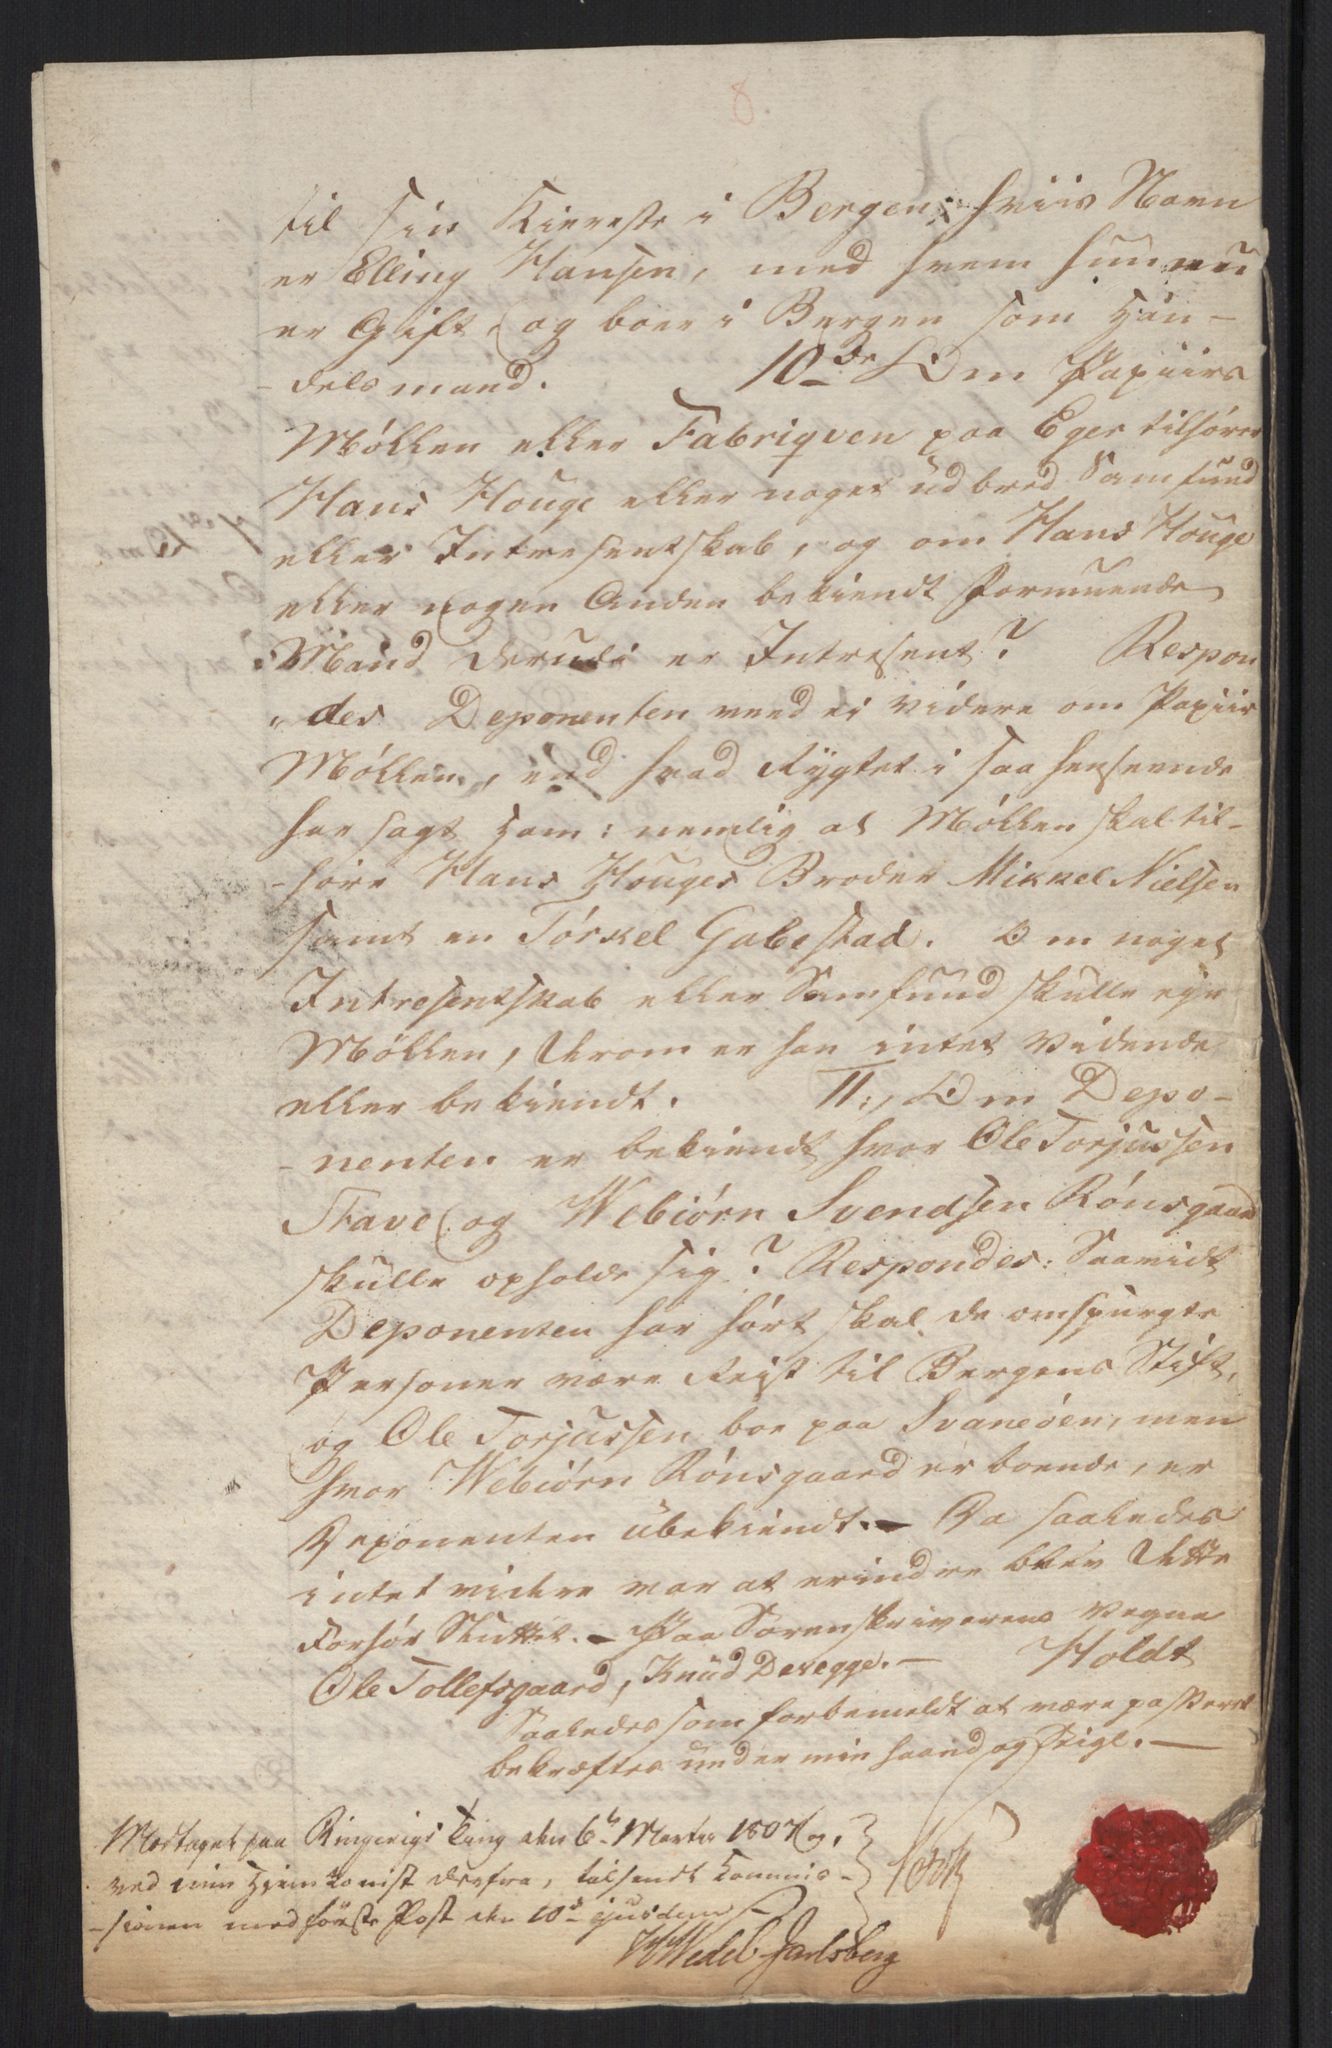 8
til sin Kiereste i Bergen, hviis Navn
er Elling Hansen, med hvem hun nu
er Gift og boer i Bergen som Han-
-delsmand. 10de Om Papiirs
Møllen eller Fabriqven paa Eger tilhører
Hans Houge eller noget udbred Samfund
eller Intresentskab, og om Hans Houge
eller nogen Anden bekiendt formuende
Mand derudi er Intresent? Respon
"des Deponenten veed ei videre om Papiir
Møllen, end hvad Rygtet i saa henseende
har sagt ham: nemlig at Møllen skal til-
-høre Hans Houges Broder Mikkel Nielsen
samt en Tórkel Gabestad. Om noget
Intresentskab eller Samfund skulle eje
Møllen, derom er han intet Vidende
eller bekiendt. 11:, Om Depo-
-nenten er bekiendt hvor Ole Torjussen
Stave og Webiørn Svendsen Rónsgaard
skulle opholde sig? Respondes: Saavidt
Deponenten har hørt skal de omspurgte
Personer være Reist til Bergens Stift,
og Ole Torjussen boe paa Svaneöen, men
hvor Webiørn Rónsgaard er boende, er
Deponenten ubekiendt. – Da saaledes
intet videre var at erindre blev dette
Forhør Sluttet. – Paa Sorenskriverens Vegne
Holdt
Ole Tollefsgaard, Knud Deregge. –
Saaledes som forbemeldt at være passeret
bekræftes under min Haand og Seigl. –
Modtaget paa Ringerigs Ting den 6te Martii 1807 og,
ved min Hjemkomst derfra, tilsendt Commis-
-sionen med første Post den 10de ejusdem
Holdt
WWedel Jarlsberg